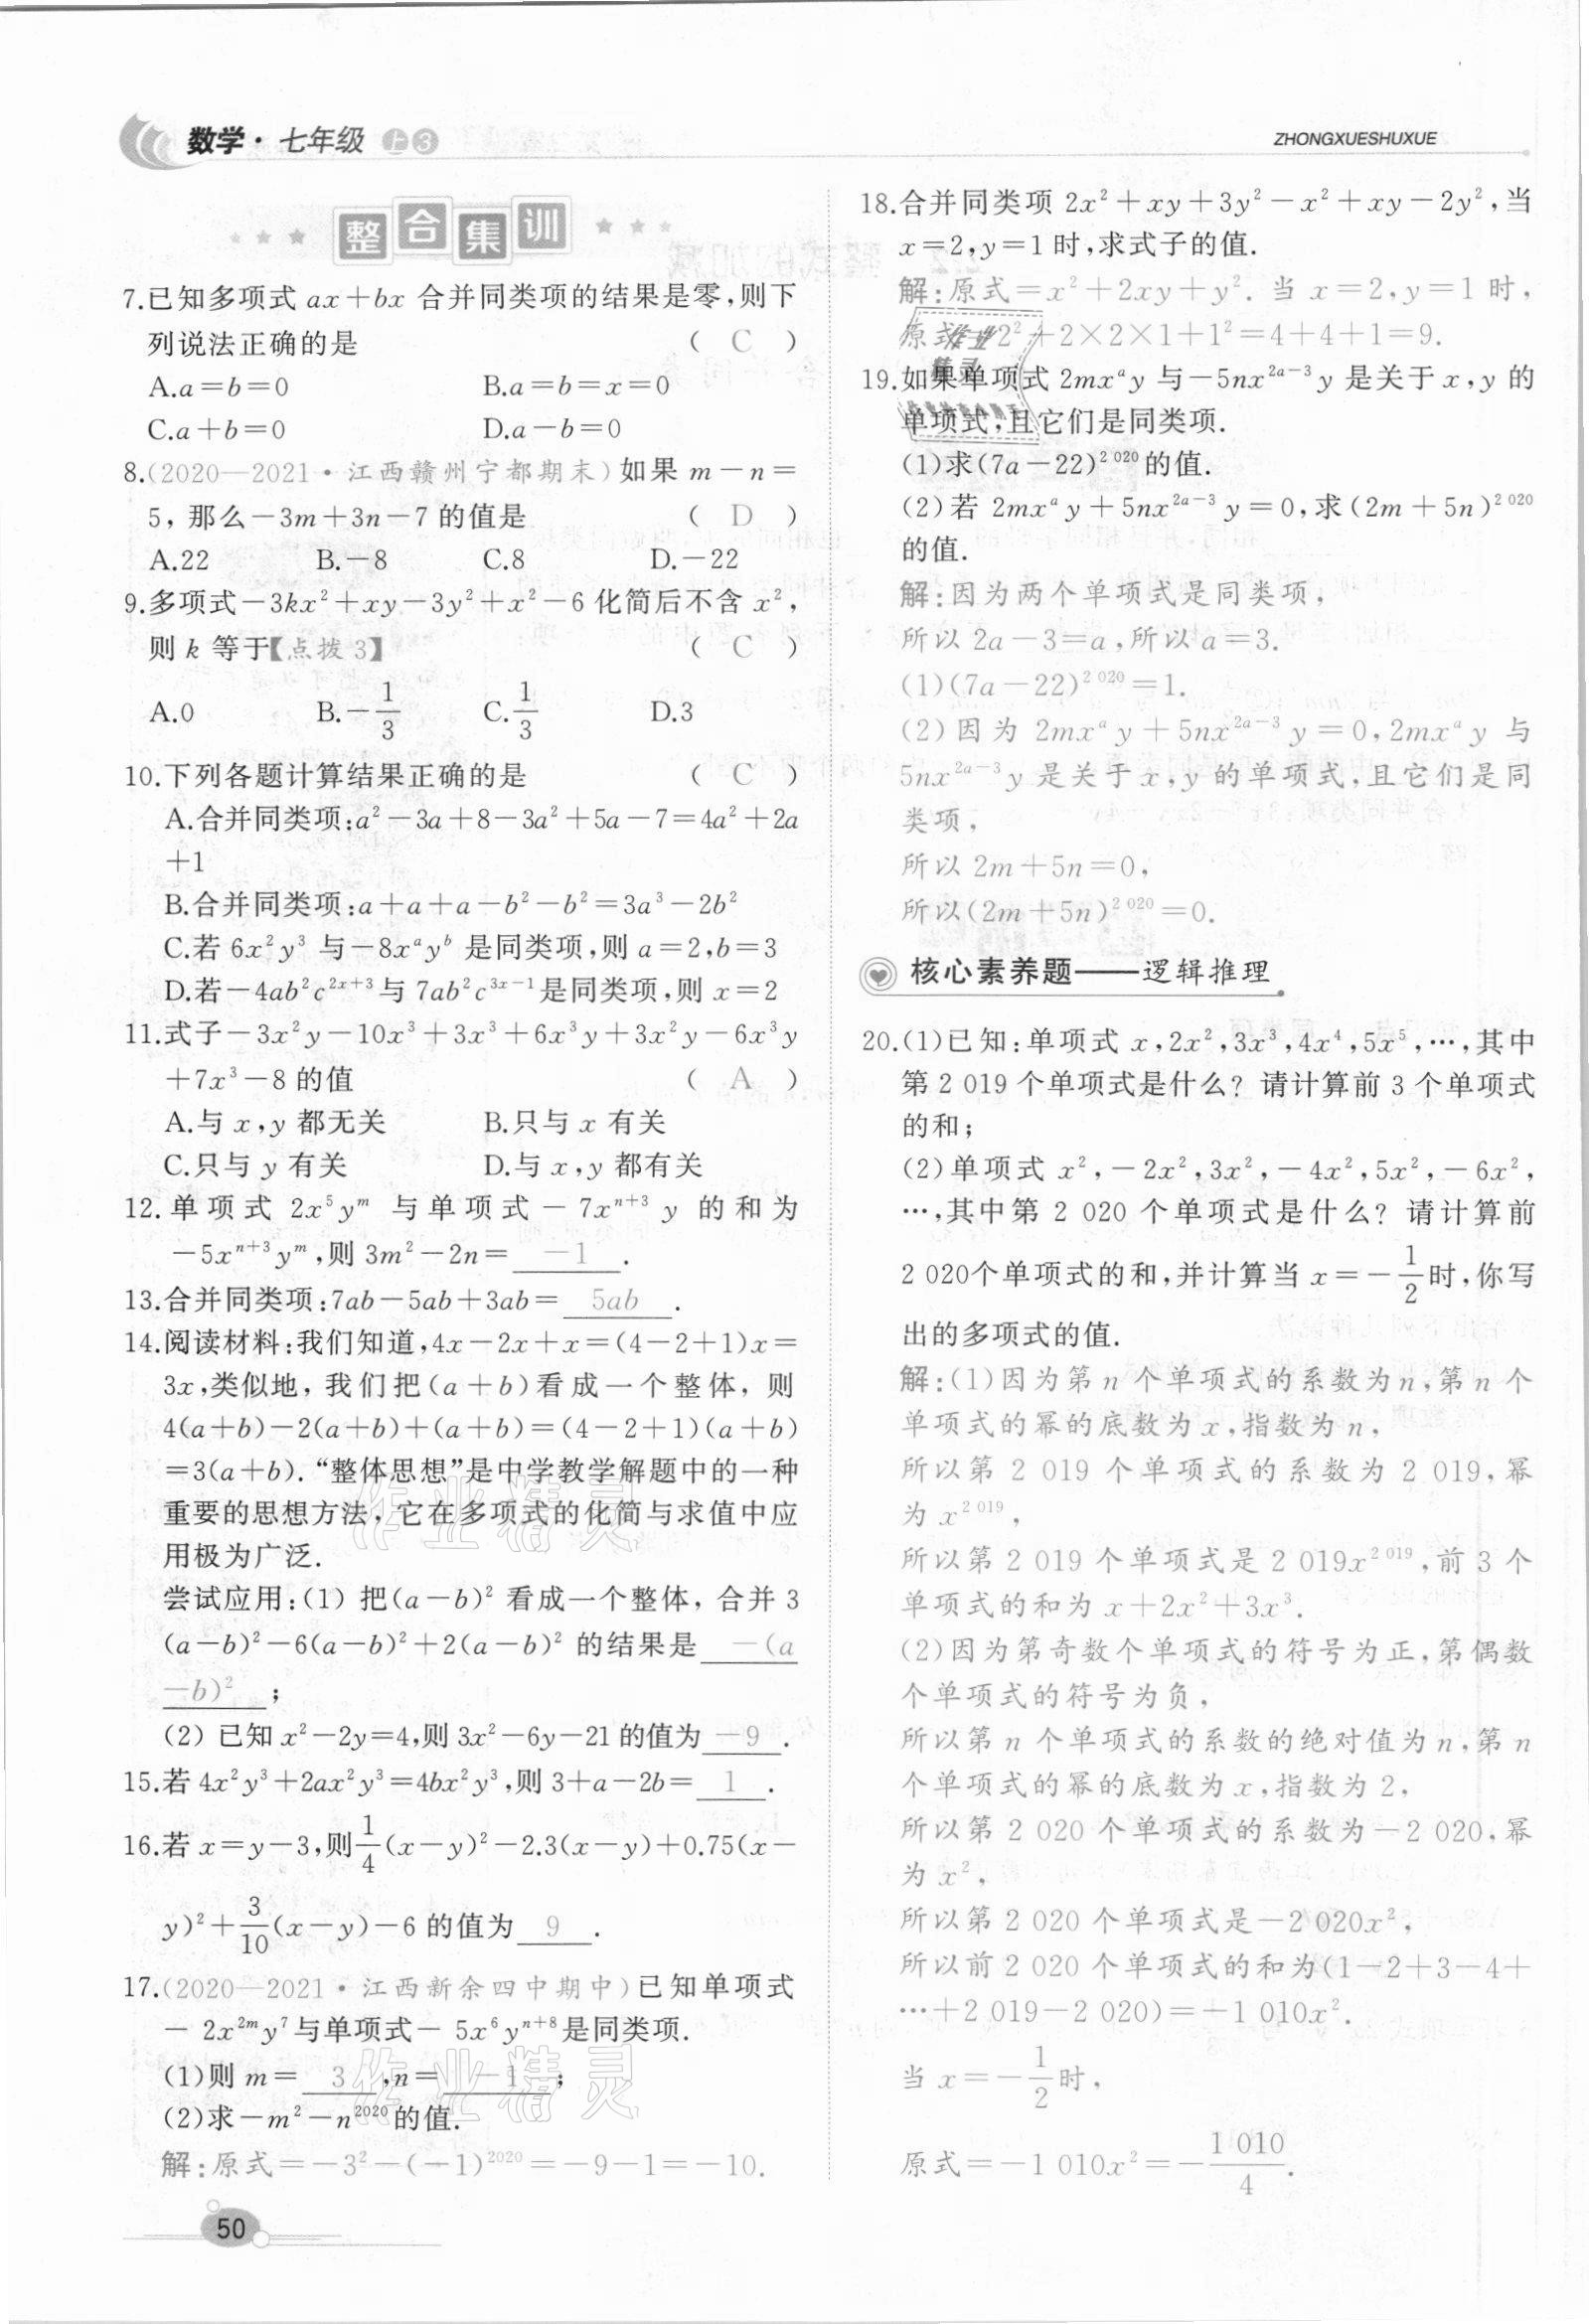 数学·七年级 上 3
ZHONGXUESHUXUE
整合集训
7.已知多项式 ax+bx 合并同类项的结果是零,则下
列说法正确的是 ( C )
A.a=b=0 B.a=b=x=0
C.a+b=0 D.a-b=0
8.(2020—2021·江西赣州宁都期末)如果 m-n=
5,那么-3m+3n-7 的值是 ( D )
A.22 B.-8 C.8 D.-22
9.多项式-3kx²+xy-3y²+x²-6 化简后不含 x²,
则 k 等于【点拨 3】 ( C )
A.0 B.-1/3 C.1/3 D.3
10.下列各题计算结果正确的是 ( C )
A.合并同类项:a²-3a+8-3a²+5a-7=4a²+2a
+1
B.合并同类项:a+a+a-b²-b²=3a³-2b²
C.若 6x²y³ 与-8xᵃyᵇ 是同类项,则 a=2,b=3
D.若-4ab²c²ˣ⁺³与 7ab²c³ˣ⁻¹是同类项,则 x=2
11.式子-3x²y-10x³+3x³+6x³y+3x²y-6x³y
+7x³-8 的值 ( A )
A.与 x,y 都无关 B.只与 x 有关
C.只与 y 有关 D.与 x,y 都有关
12.单项式 2x⁵yᵐ 与单项式-7xⁿ⁺³y 的和为
-5xⁿ⁺³yᵐ,则 3m²-2n= -1 .
13.合并同类项:7ab-5ab+3ab= 5ab .
14.阅读材料:我们知道,4x-2x+x=(4-2+1)x=
3x,类似地,我们把(a+b)看成一个整体,则
4(a+b)-2(a+b)+(a+b)=(4-2+1)(a+b)
=3(a+b).“整体思想”是中学教学解题中的一种
重要的思想方法,它在多项式的化简与求值中应
用极为广泛.
尝试应用:(1) 把(a-b)² 看成一个整体,合并 3
(a-b)²-6(a-b)²+2(a-b)² 的结果是 -(a
-b)² ;
(2) 已知 x²-2y=4,则 3x²-6y-21 的值为 -9 .
15.若 4x²y³+2ax²y³=4bx²y³,则 3+a-2b= 1 .
16.若 x=y-3,则1/4(x-y)²-2.3(x-y)+0.75(x-
y)²+3/10(x-y)-6 的值为 9 .
17.(2020—2021·江西新余四中期中)已知单项式
-2x²ᵐy⁷与单项式-5x⁶yⁿ⁺⁸是同类项.
(1)则 m= 3 ,n= -1 ;
(2)求-m²-n²⁰²⁰的值.
解:原式=-3²-(-1)²⁰²⁰=-9-1=-10.
50
18.合并同类项 2x²+xy+3y²-x²+xy-2y²,当
x=2,y=1 时,求式子的值.
解:原式=x²+2xy+y². 当 x=2,y=1 时,
原式=2²+2×2×1+1²=4+4+1=9.
19.如果单项式 2mxᵃy 与-5nx²ᵃ⁻³y 是关于 x,y 的
单项式,且它们是同类项.
(1)求(7a-22)²⁰²⁰的值.
(2)若 2mxᵃy+5nx²ᵃ⁻³y=0,求(2m+5n)²⁰²⁰
的值.
解:因为两个单项式是同类项,
所以 2a-3=a,所以 a=3.
(1)(7a-22)²⁰²⁰=1.
(2)因为 2mxᵃy+5nx²ᵃ⁻³y=0,2mxᵃy 与
5nx²ᵃ⁻³y 是关于 x,y 的单项式,且它们是同
类项,
所以 2m+5n=0,
所以(2m+5n)²⁰²⁰=0.
核心素养题——逻辑推理
20.(1)已知:单项式 x,2x²,3x³,4x⁴,5x⁵,…,其中
第 2 019 个单项式是什么?请计算前 3 个单项式
的和;
(2)单项式 x²,-2x²,3x²,-4x²,5x²,-6x²,
…,其中第 2 020 个单项式是什么?请计算前
2 020个单项式的和,并计算当 x=-1/2时,你写
出的多项式的值.
解:(1)因为第 n 个单项式的系数为 n,第 n 个
单项式的幂的底数为 x,指数为 n,
所以第 2 019 个单项式的系数为 2 019,幂
为 x²⁰¹⁹,
所以第 2 019 个单项式是 2 019x²⁰¹⁹,前 3 个
单项式的和为 x+2x²+3x³.
(2)因为第奇数个单项式的符号为正,第偶数
个单项式的符号为负,
所以第 n 个单项式的系数的绝对值为 n,第 n
个单项式的幂的底数为 x,指数为 2,
所以第 2 020 个单项式的系数为-2 020,幂
为 x²,
所以第 2 020 个单项式是-2 020x²,
所以前 2 020 个单项式的和为(1-2+3-4+
…+2 019-2 020)=-1 010x².
当 x=-1/2时,
原式=-1 010x²=-1 010/4.
作业精灵
作业精灵